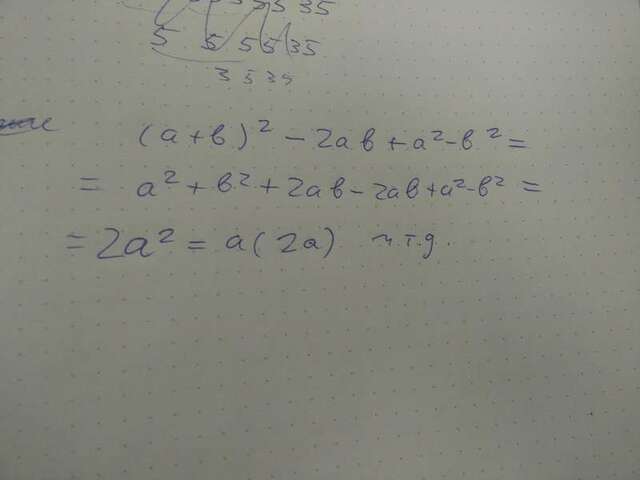 35
5 5 5 5 35
3 5 35
(a+b)² - 2ab + a² - b² =
= a² + b² + 2ab - 2ab + a² - b² =
= 2a² = a(2a) ч.т.д.